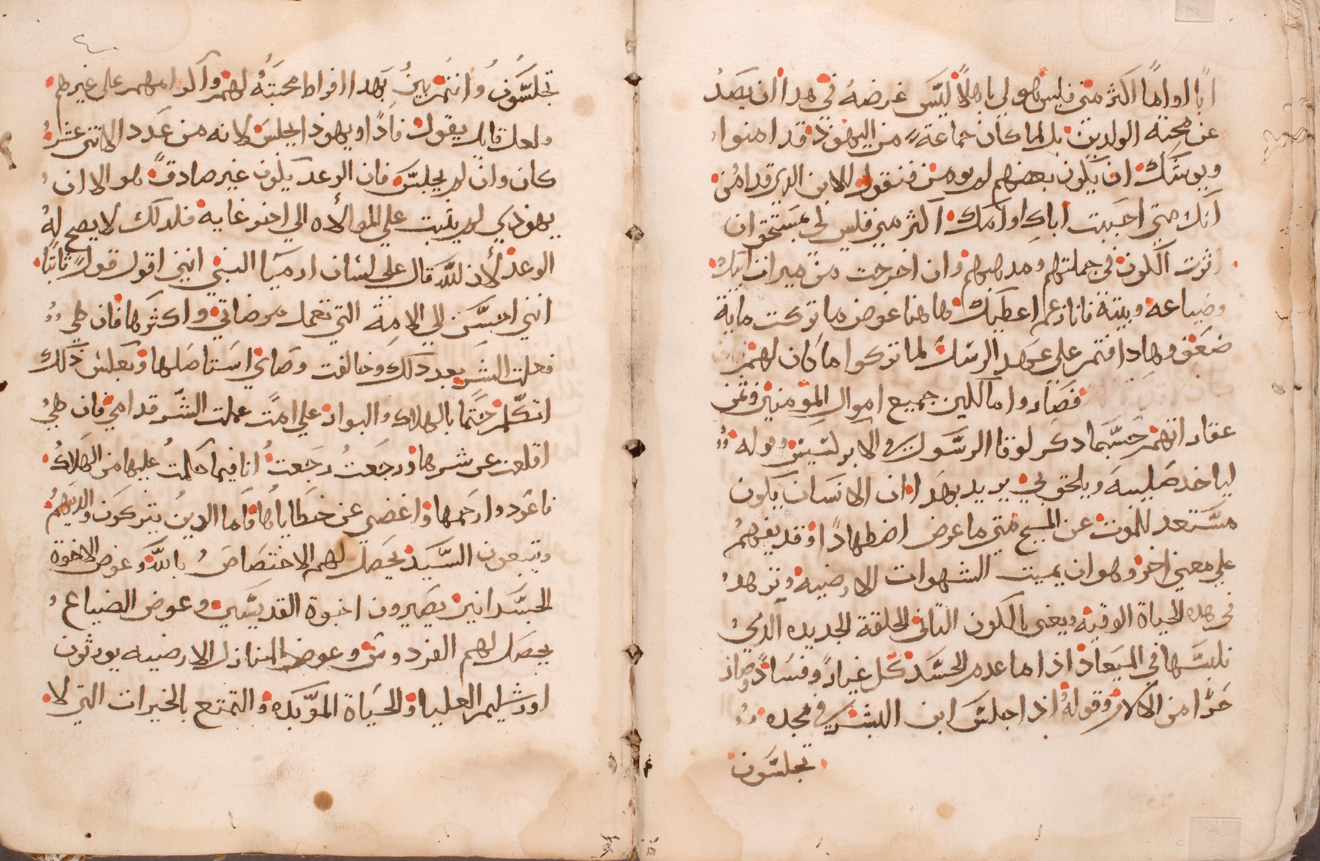 ابًا او امًا اكثر مني فليس هو لي باهلاً ليس غرضه في هدا ان يصد
عن محبة الوالدين بل لما كان جماعة من اليهود قد امنوا
ويوشك ان يكون بعضهم لم يومن فنقول الابن الذي قد امن
انك متي احببت اباك او امك اكثر مني فليس لي بمستحق ان
اثرت الكون في جملتهم ومدهبهم وان اخرجت من ميرات ابيك
وضياعه وبيته فانا اعطيك هاهنا عوض ما تركت ماية
ضعف وهادا فتم علي عهد الرسل لما تركوا ما كان لهم
فصاروا مالكين جميع اموال المومنين وتمن
عقاراتهم حسبما دكر لوقا الرسول في الابركسيس وقوله
لياخد صليبه ويلحق بي يريد بهدا ان الانسان يكون
مستعد للموت عن المسيح متي ما عرض اضطهادًا وقد يفهم
علي معني اخر وهو ان يميت الشهوات الارضيه وتزهد
في هده الحياة الوقتيه ويعني بالكون التاني الخلقة الجديده الدي
نلبسها في الميعاد ادا ما عدم الجسد كل غيارًا وفسادًا وصار
حرًا من الالام وقوله ادا جلس ابن البشر في مجده
تجلسون
تجلسون وانتم يريد بهدا افراط محبته لهم واكرامهم علي غيرهم
ولعل قايل يقول فادًا ويهودا يجلس لانه من عدد الاتني عشر
كان وان لم يجلس فان الوعد يكون غير صادق هو الا ان
يهودي لم يثبت علي الموالاه الي اخر غاية فلدلك لا يصح له
الوعد لان الله قال علي لسان ارميا النبي انني اقول قولً تابتًا
انني احسن الي الامة التي تعمل مرضاتي واكثرها فان هي
فعلت الشر بعد دلك وخالفت وصاي استاصلها وبعكس دلك
اتكلم حتمًا بالهلاك والبوار علي امت عملت الشر قدامي فان هي
اقلعت عن شرها ورجعت رجعت انا فيما حكمت عليها من الهلاك
فاعود وارحمها واغضي عن خطاياها فاما الدين يتركون والديهم
ويتبعون السيد يحصل لهم الاختصاص بالله وعوض الاخوة
الجسدانين يصيرون اخوة القديسين وعوض الضياع
يحصل لهم الفردوس وعوض المنازل الارضيه يورتون
اورشليم العليا والحياة الموبده والتمتع بالخيرات التي لا